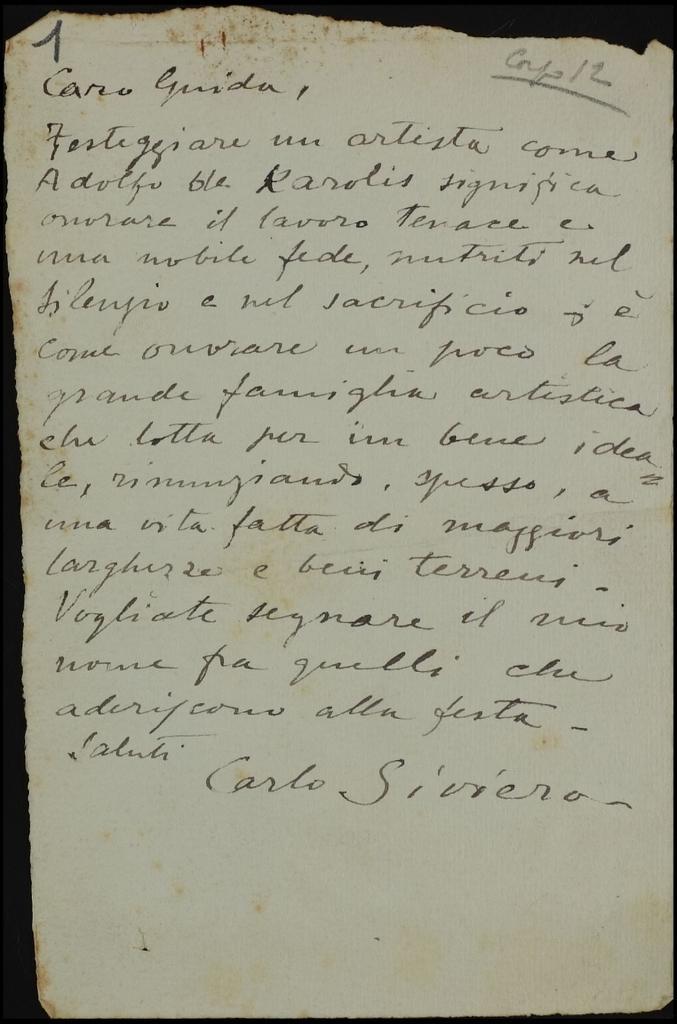 1
Corpo 12
Caro Guida,
Festeggiare un artista come
Adolfo de Karolis significa
onorare il lavoro tenace e
una nobile fede, nutriti nel
silenzio e nel sacrificio - è
come onorare un poco la
grande famiglia artistica
che lotta per un bene idea=
le, rinunziando, spesso, a
una vita fatta di maggiori
larghezze e beni terreni -
Vogliate segnare il mio
nome fra quelli che
aderiscono alla festa -
Saluti
Carlo Siviero -